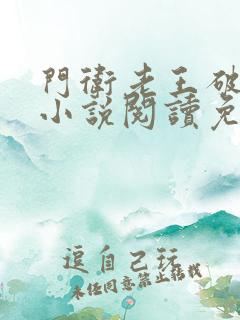 門衛老王破
小說閱讀免
逗自己玩
未任同意禁止轉載